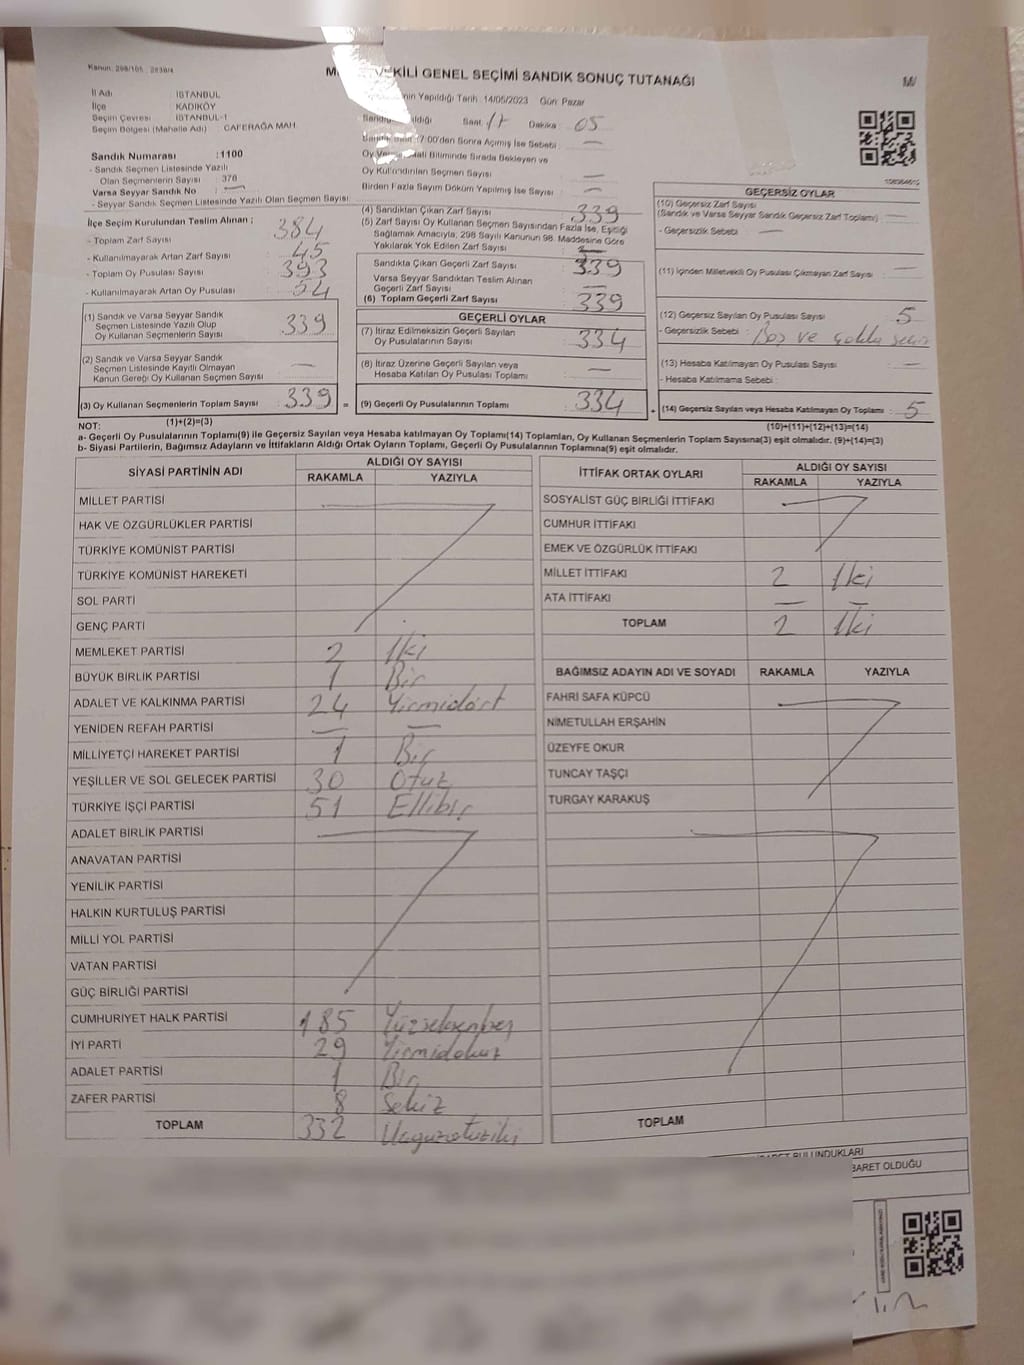 Kanun: 298/105 : 2839/4
VEKİLİ GENEL SEÇİMİ SANDIK SONUÇ TUTANAĞI
M/
İl Adı : İSTANBUL
İlçe : KADIKÖY
Seçim Çevresi : İSTANBUL-1
Seçim Bölgesi (Mahalle Adı) : CAFERAĞA MAH.
Yapıldığı Tarih : 14/05/2023 Gün: Pazar
Saat : 17 Dakika : 05
17:00'den Sonra Açımış İse Sebebi : —
Bitiminde Sırada Bekleyen ve
Oy Kullandırılan Seçmen Sayısı : —
Birden Fazla Sayım Döküm Yapılmış İse Sayısı : —
Sandık Numarası : 1100
- Sandık Seçmen Listesinde Yazılı
Olan Seçmenlerin Sayısı : 376
Varsa Seyyar Sandık No : —
- Seyyar Sandık Seçmen Listesinde Yazılı Olan Seçmen Sayısı:
İlçe Seçim Kurulundan Teslim Alınan ;
- Toplam Zarf Sayısı : 384
- Kullanılmayarak Artan Zarf Sayısı : 45
- Toplam Oy Pusulası Sayısı : 393
- Kullanılmayarak Artan Oy Pusulası : 54
(1) Sandık ve Varsa Seyyar Sandık
Seçmen Listesinde Yazılı Olup
Oy Kullanan Seçmenlerin Sayısı : 339
(2) Sandık ve Varsa Seyyar Sandık
Seçmen Listesinde Kayıtlı Olmayan
Kanun Gereği Oy Kullanan Seçmen Sayısı : —
(3) Oy Kullanan Seçmenlerin Toplam Sayısı : 339 =
(1)+(2)=(3)
(4) Sandıktan Çıkan Zarf Sayısı : 339
(5) Zarf Sayısı Oy Kullanan Seçmen Sayısından Fazla İse, Eşitliği
Sağlamak Amacıyla, 298 Sayılı Kanunun 98. Maddesine Göre
Yakılarak Yok Edilen Zarf Sayısı : —
Sandıkta Çıkan Geçerli Zarf Sayısı : 339
Varsa Seyyar Sandıktan Teslim Alınan
Geçerli Zarf Sayısı : —
(6) Toplam Geçerli Zarf Sayısı : 339
GEÇERLİ OYLAR
(7) İtiraz Edilmeksizin Geçerli Sayılan
Oy Pusulalarının Sayısı : 334
(8) İtiraz Üzerine Geçerli Sayılan veya
Hesaba Katılan Oy Pusulası Toplamı : —
(9) Geçerli Oy Pusulalarının Toplamı : 334 +
GEÇERSİZ OYLAR
(10) Geçersiz Zarf Sayısı
(Sandık ve Varsa Seyyar Sandık Geçersiz Zarf Toplamı) : —
- Geçersizlik Sebebi : —
(11) İçinden Milletvekili Oy Pusulası Çıkmayan Zarf Sayısı : —
(12) Geçersiz Sayılan Oy Pusulası Sayısı : 5
- Geçersizlik Sebebi : Boş ve
(13) Hesaba Katılmayan Oy Pusulası Sayısı : —
- Hesaba Katılmama Sebebi :
(14) Geçersiz Sayılan veya Hesaba Katılmayan Oy Toplamı : 5
(10)+(11)+(12)+(13)=(14)
NOT:
a- Geçerli Oy Pusulalarının Toplamı(9) ile Geçersiz Sayılan veya Hesaba katılmayan Oy Toplamı(14) Toplamları, Oy Kullanan Seçmenlerin Toplam Sayısına(3) eşit olmalıdır. (9)+(14)=(3)
b- Siyasi Partilerin, Bağımsız Adayların ve İttifakların Aldığı Ortak Oyların Toplamı, Geçerli Oy Pusulalarının Toplamına(9) eşit olmalıdır.
SİYASİ PARTİNİN ADI
ALDIĞI OY SAYISI
RAKAMLA YAZIYLA
MİLLET PARTİSİ
HAK VE ÖZGÜRLÜKLER PARTİSİ
TÜRKİYE KOMÜNİST PARTİSİ
TÜRKİYE KOMÜNİST HAREKETİ
SOL PARTİ
GENÇ PARTİ
MEMLEKET PARTİSİ 2 İki
BÜYÜK BİRLİK PARTİSİ 1 Bir
ADALET VE KALKINMA PARTİSİ 24 Yirmidört
YENİDEN REFAH PARTİSİ — —
MİLLİYETÇİ HAREKET PARTİSİ 1 Bir
YEŞİLLER VE SOL GELECEK PARTİSİ 30 Otuz
TÜRKİYE İŞÇİ PARTİSİ 51 Ellibir
ADALET BİRLİK PARTİSİ
ANAVATAN PARTİSİ
YENİLİK PARTİSİ
HALKIN KURTULUŞ PARTİSİ
MİLLİ YOL PARTİSİ
VATAN PARTİSİ
GÜÇ BİRLİĞİ PARTİSİ
CUMHURİYET HALK PARTİSİ 185 Yüzseksenbeş
İYİ PARTİ 29 Yirmidokuz
ADALET PARTİSİ 1 Bir
ZAFER PARTİSİ 8 Sekiz
TOPLAM 332 Üçyüzotuziki
İTTİFAK ORTAK OYLARI
ALDIĞI OY SAYISI
RAKAMLA YAZIYLA
SOSYALİST GÜÇ BİRLİĞİ İTTİFAKI
CUMHUR İTTİFAKI
EMEK VE ÖZGÜRLÜK İTTİFAKI
MİLLET İTTİFAKI 2 İki
ATA İTTİFAKI — —
TOPLAM 2 İki
BAĞIMSIZ ADAYIN ADI VE SOYADI RAKAMLA YAZIYLA
FAHRİ SAFA KÜPCÜ
NİMETULLAH ERŞAHİN
ÜZEYFE OKUR
TUNCAY TAŞÇI
TURGAY KARAKUŞ
TOPLAM
BULUNDUKLARI
BARET OLDUĞU